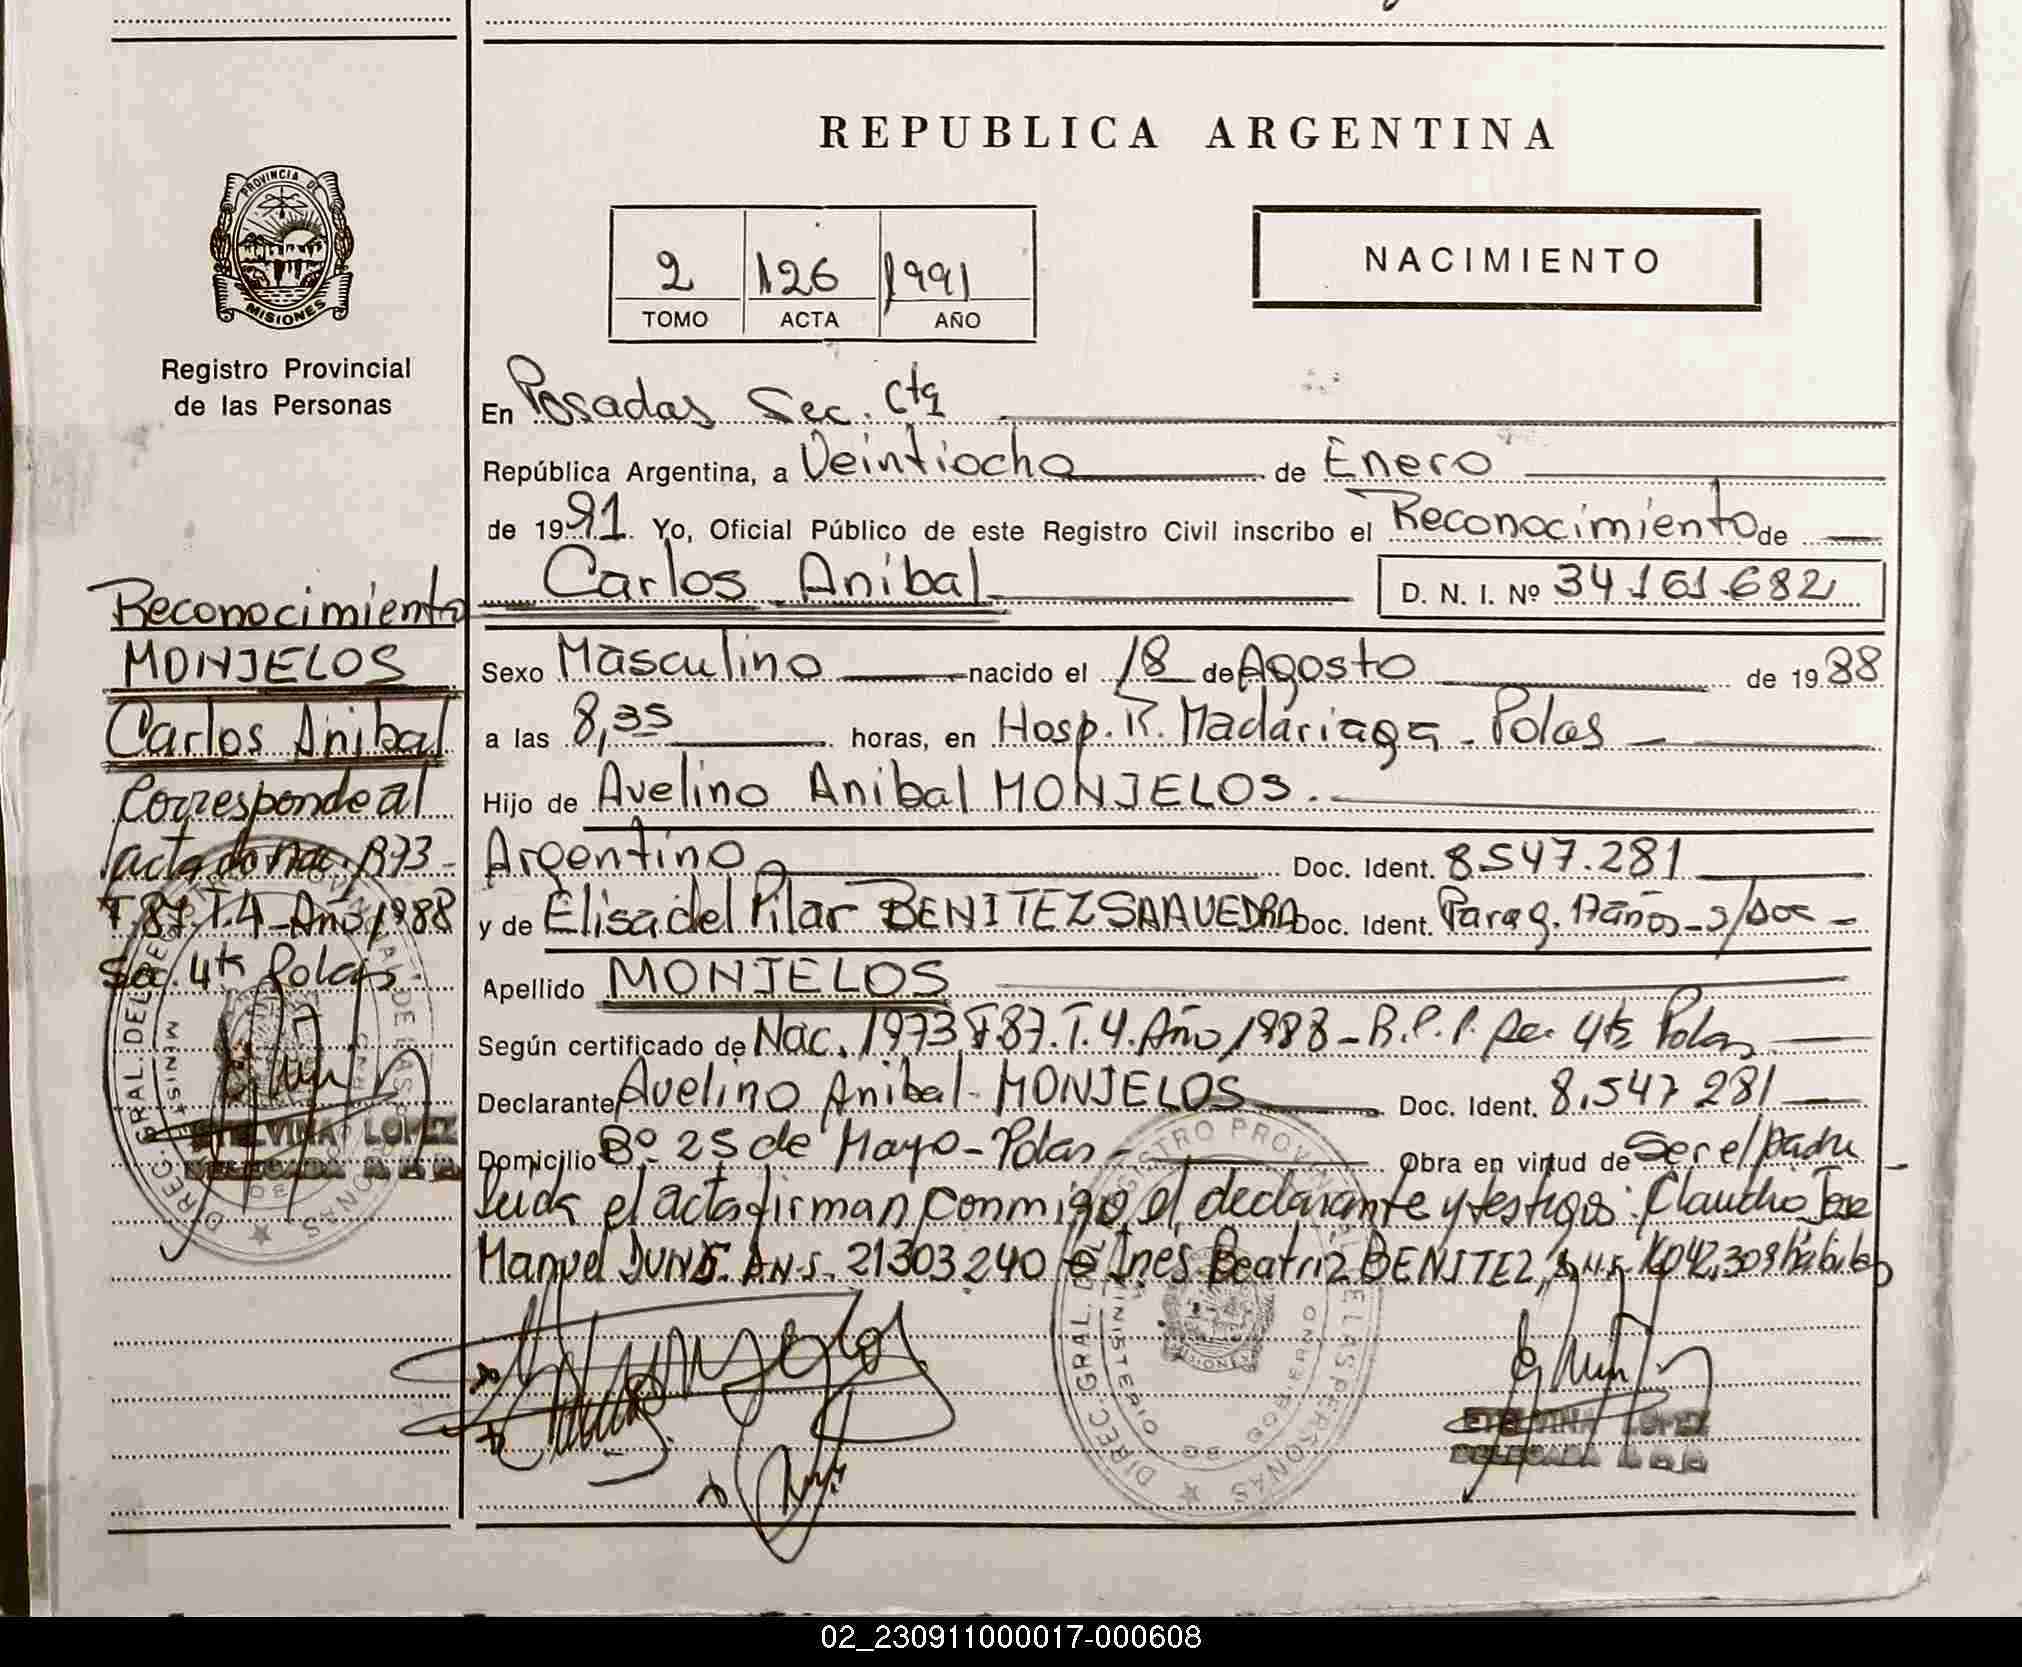 PROVINCIA DE
MISIONES
Registro Provincial
de las Personas
Reconocimiento
MONJELOS
Carlos Anibal
Corresponde al
acta de nac. 1973-
F.87.T.4-Año 1988
Sec. 4ta Pdas
ETELVINA LOPEZ
DELEGADA
REPUBLICA ARGENTINA
2 126 1991
TOMO ACTA AÑO
NACIMIENTO
En Posadas Sec. Cta
República Argentina, a Veintiocho de Enero
de 1991. Yo, Oficial Público de este Registro Civil inscribo el Reconocimiento de
Carlos Anibal D. N. I. Nº 34.161.682
Sexo Masculino nacido el 18 de Agosto de 1988
a las 8,35 horas, en Hosp. R. Madariaga - Pdas
Hijo de Avelino Anibal MONJELOS.
Argentino Doc. Ident. 8.547.281
y de Elisa del Pilar BENITEZ SAAVEDRA Doc. Ident. Parag. 17 años - s/Doc -
Apellido MONJELOS
Según certificado de Nac. 1973 F.87.T.4.Año 1988 - R.P.P. Sec. 4ta Pdas
Declarante Avelino Anibal MONJELOS Doc. Ident. 8.547 281
Domicilio Bº 25 de Mayo - Pdas - Obra en virtud de Ser el padre
Leida el acta firman conmigo el declarante y testigos: Claudio Jose
Manuel D.N.I. 21303.240 e Ines Beatriz BENITEZ, hábiles
ETELVINA LOPEZ
DELEGADA
02_230911000017-000608